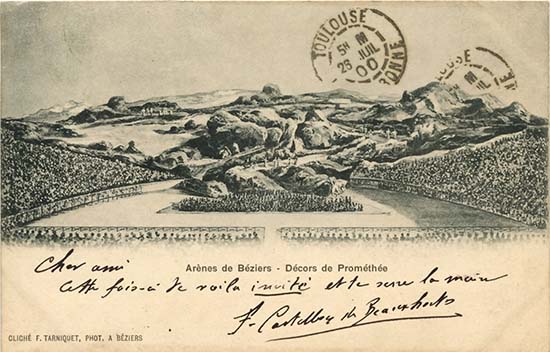 TOULOUSE
5H M
26 JUIL
00
ONNE
OUSE
M
JUIL
Arènes de Béziers - Décors de Prométhée
Cher ami
Cette fois-ci te voila invité et te serre la main
F. Castelbon de Beauxhostes
CLICHÉ F. TARNIQUET, PHOT. A BÉZIERS